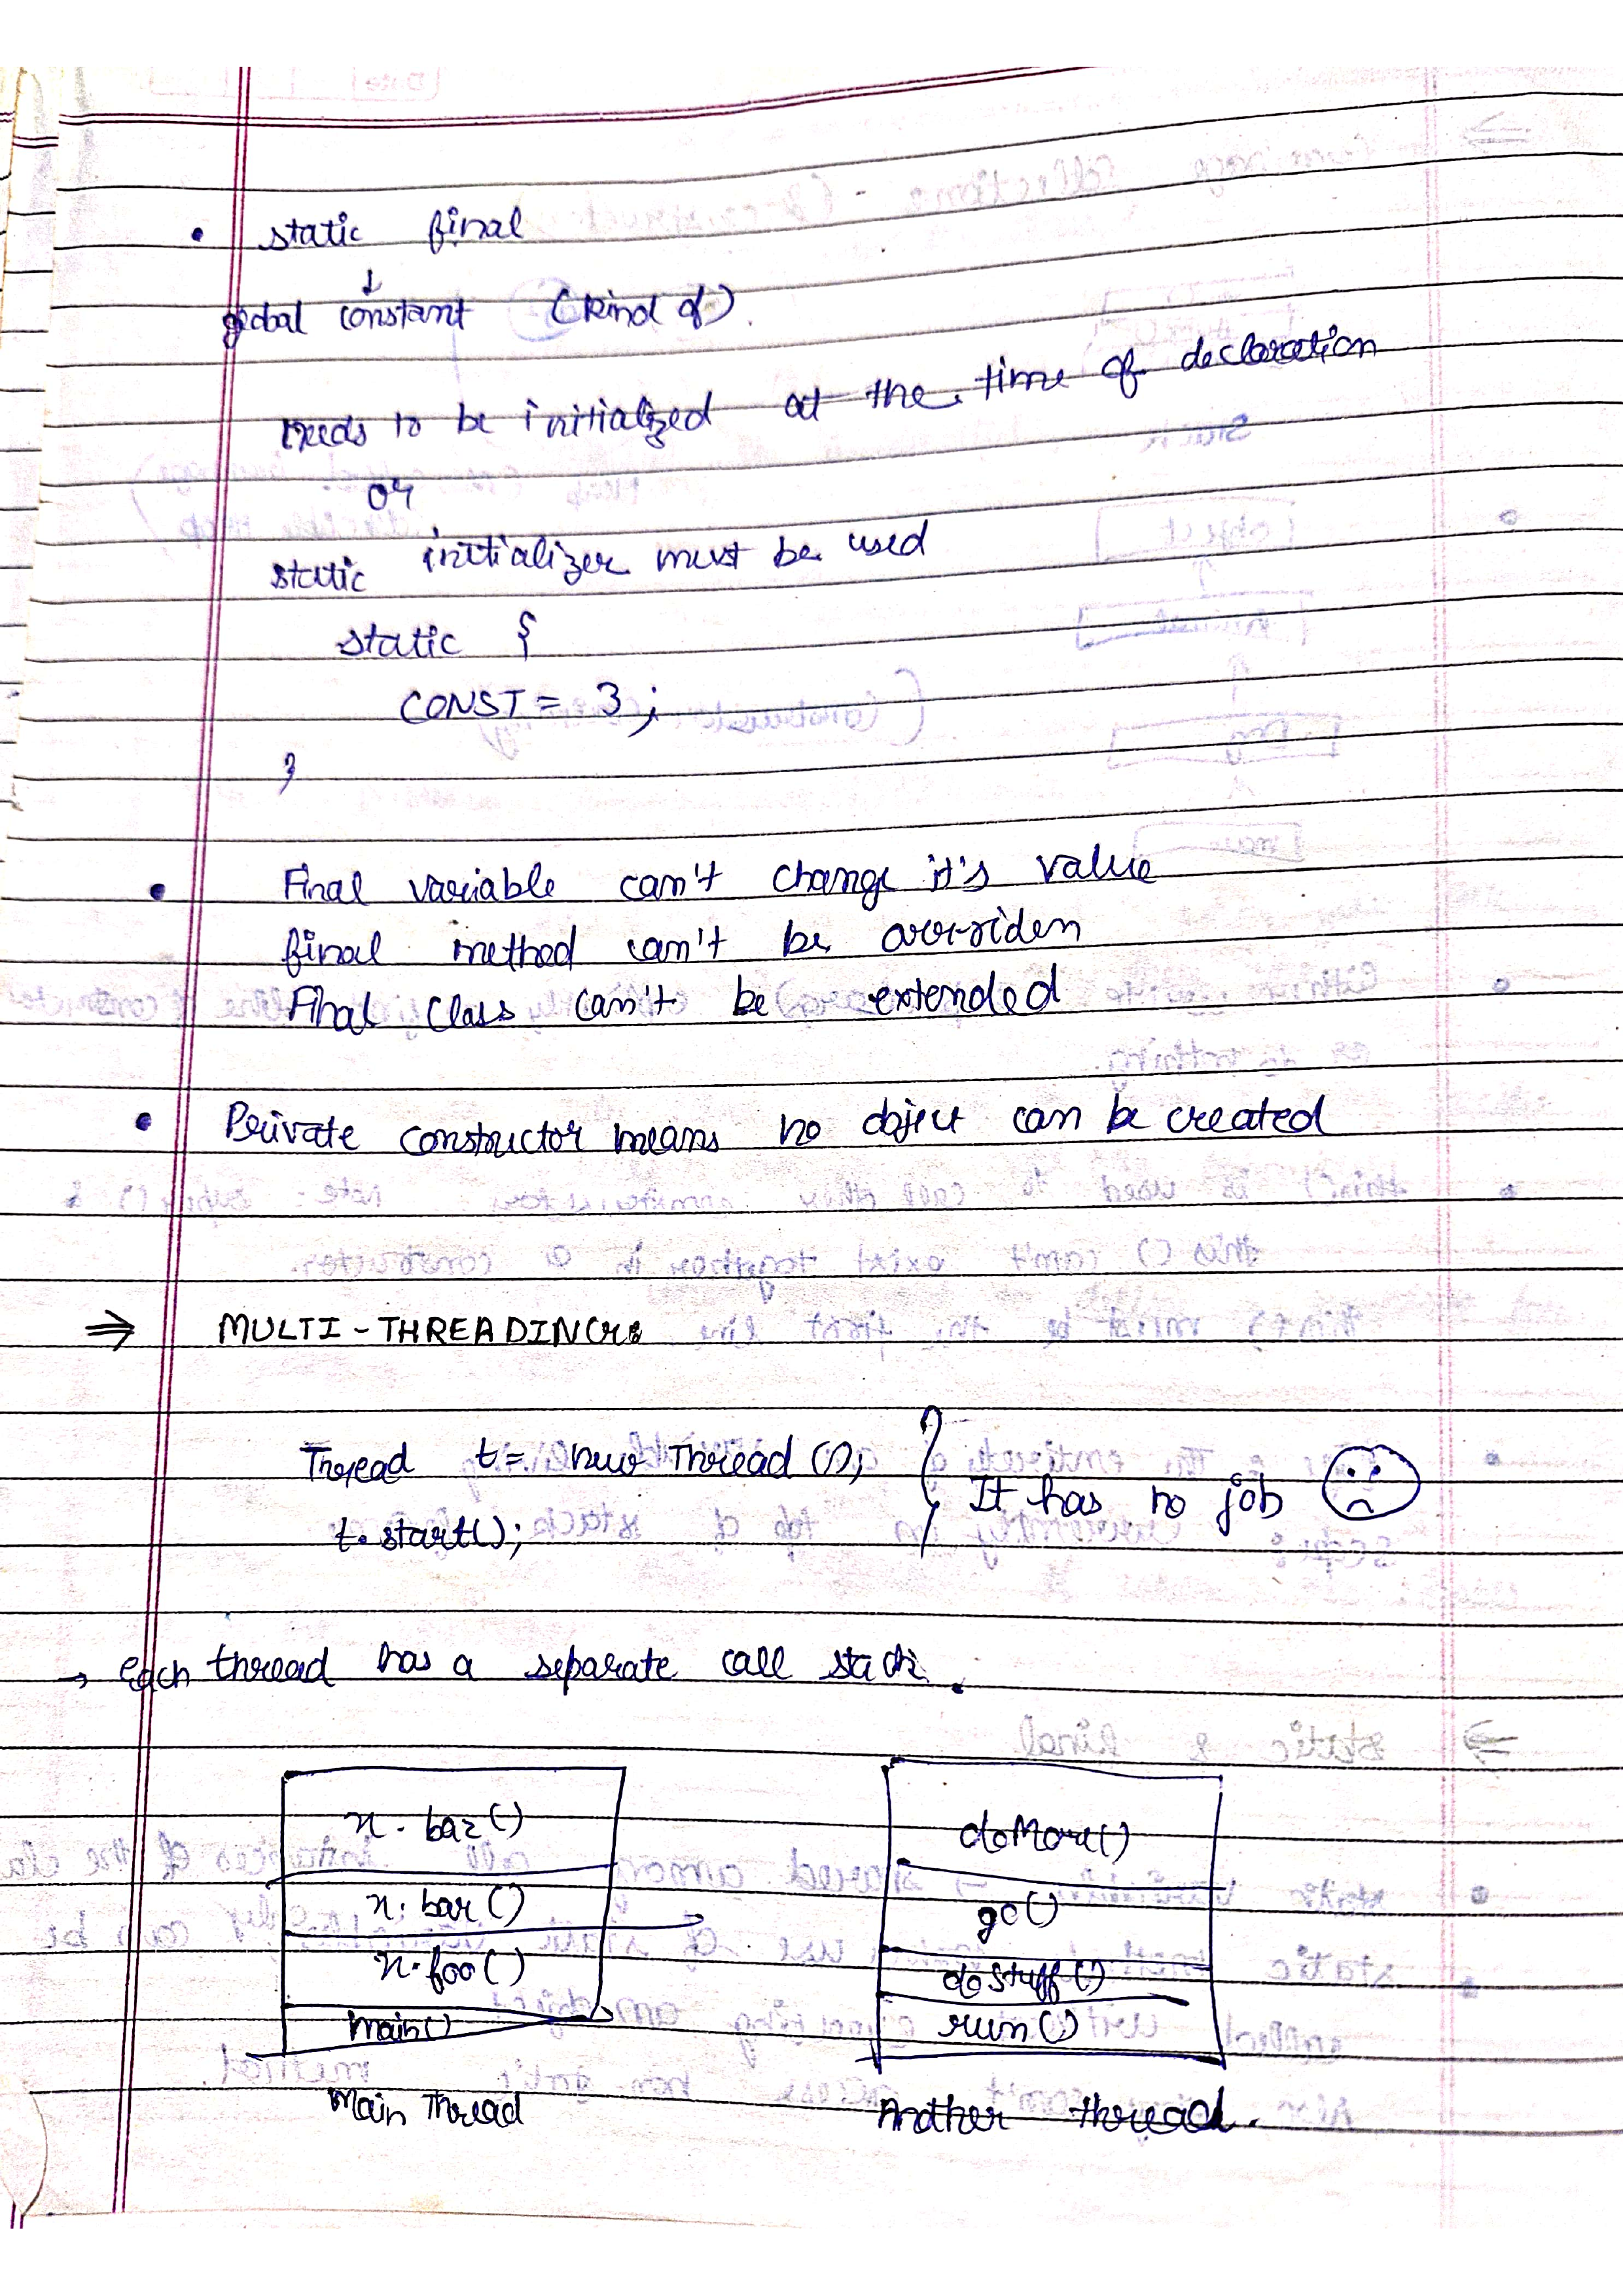 • static final
↓
global constant (kind of)
needs to be initialized at the time of declaration
or
static initializer must be used
static {
CONST = 3;
}
• Final variable can't change it's value
final method can't be overriden
Final class can't be extended
• Private constructor means no object can be created
⇒ MULTI-THREADING
Thread t = new Thread();
t.start();
It has no job
→ each thread has a separate call stack.
x.baz()
x.bar()
x.foo()
main()
Main Thread
doMore()
go()
doStuff()
run()
Another thread.